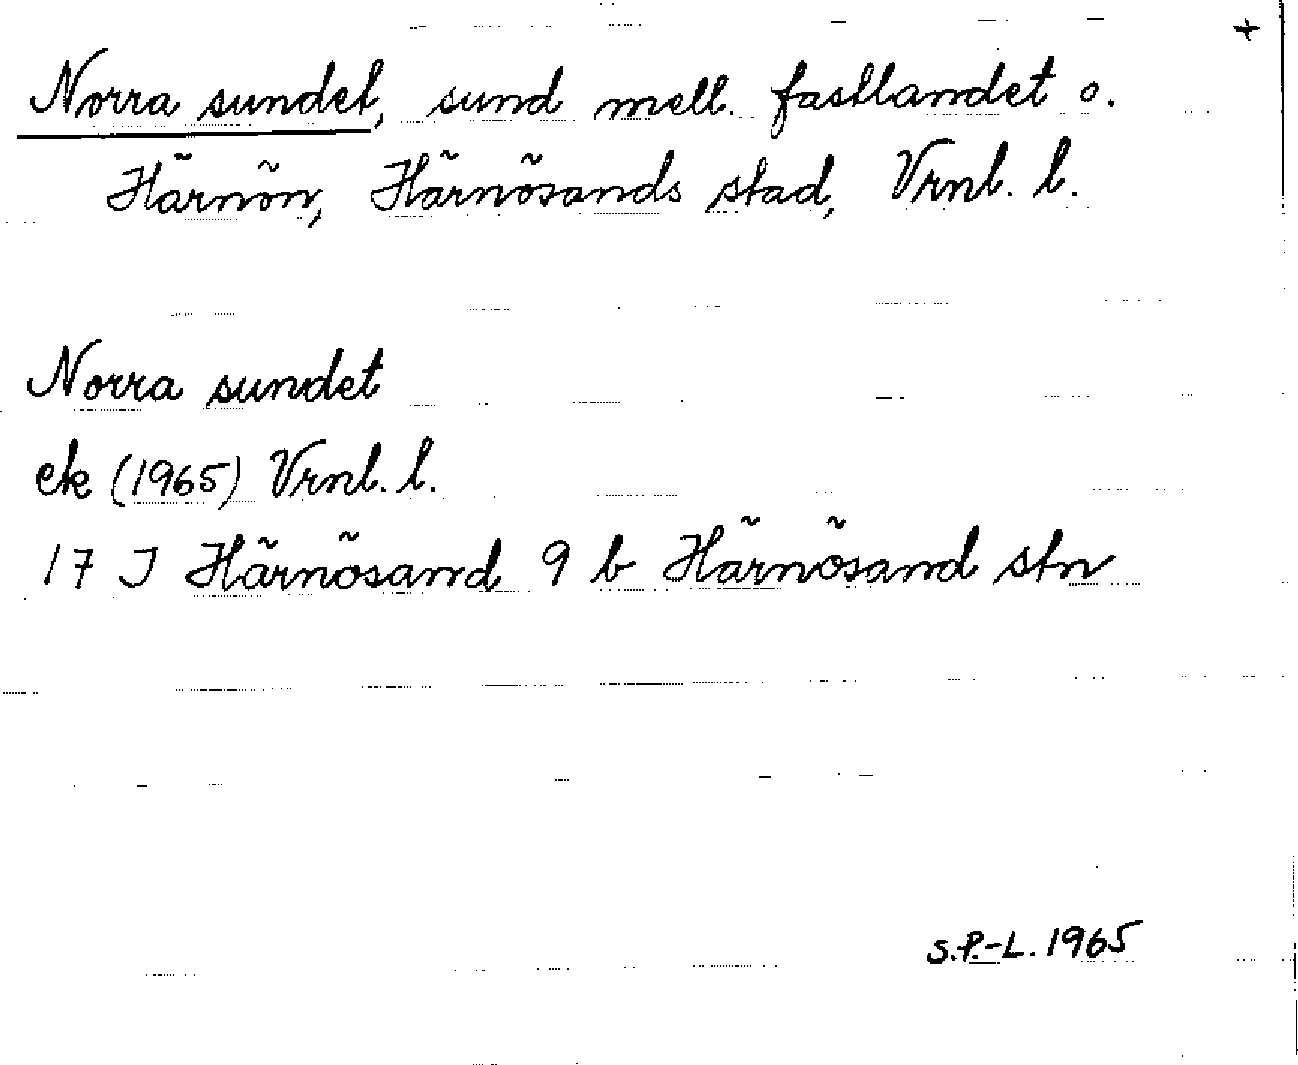 +
Norra sundet, sund mell. fastlandet o.
Härnön, Härnösands stad, Vrnl. l.
Norra sundet
ek (1965) Vrnl. l.
17 J Härnösand 9 b Härnösand stn
S.P.-L. 1965